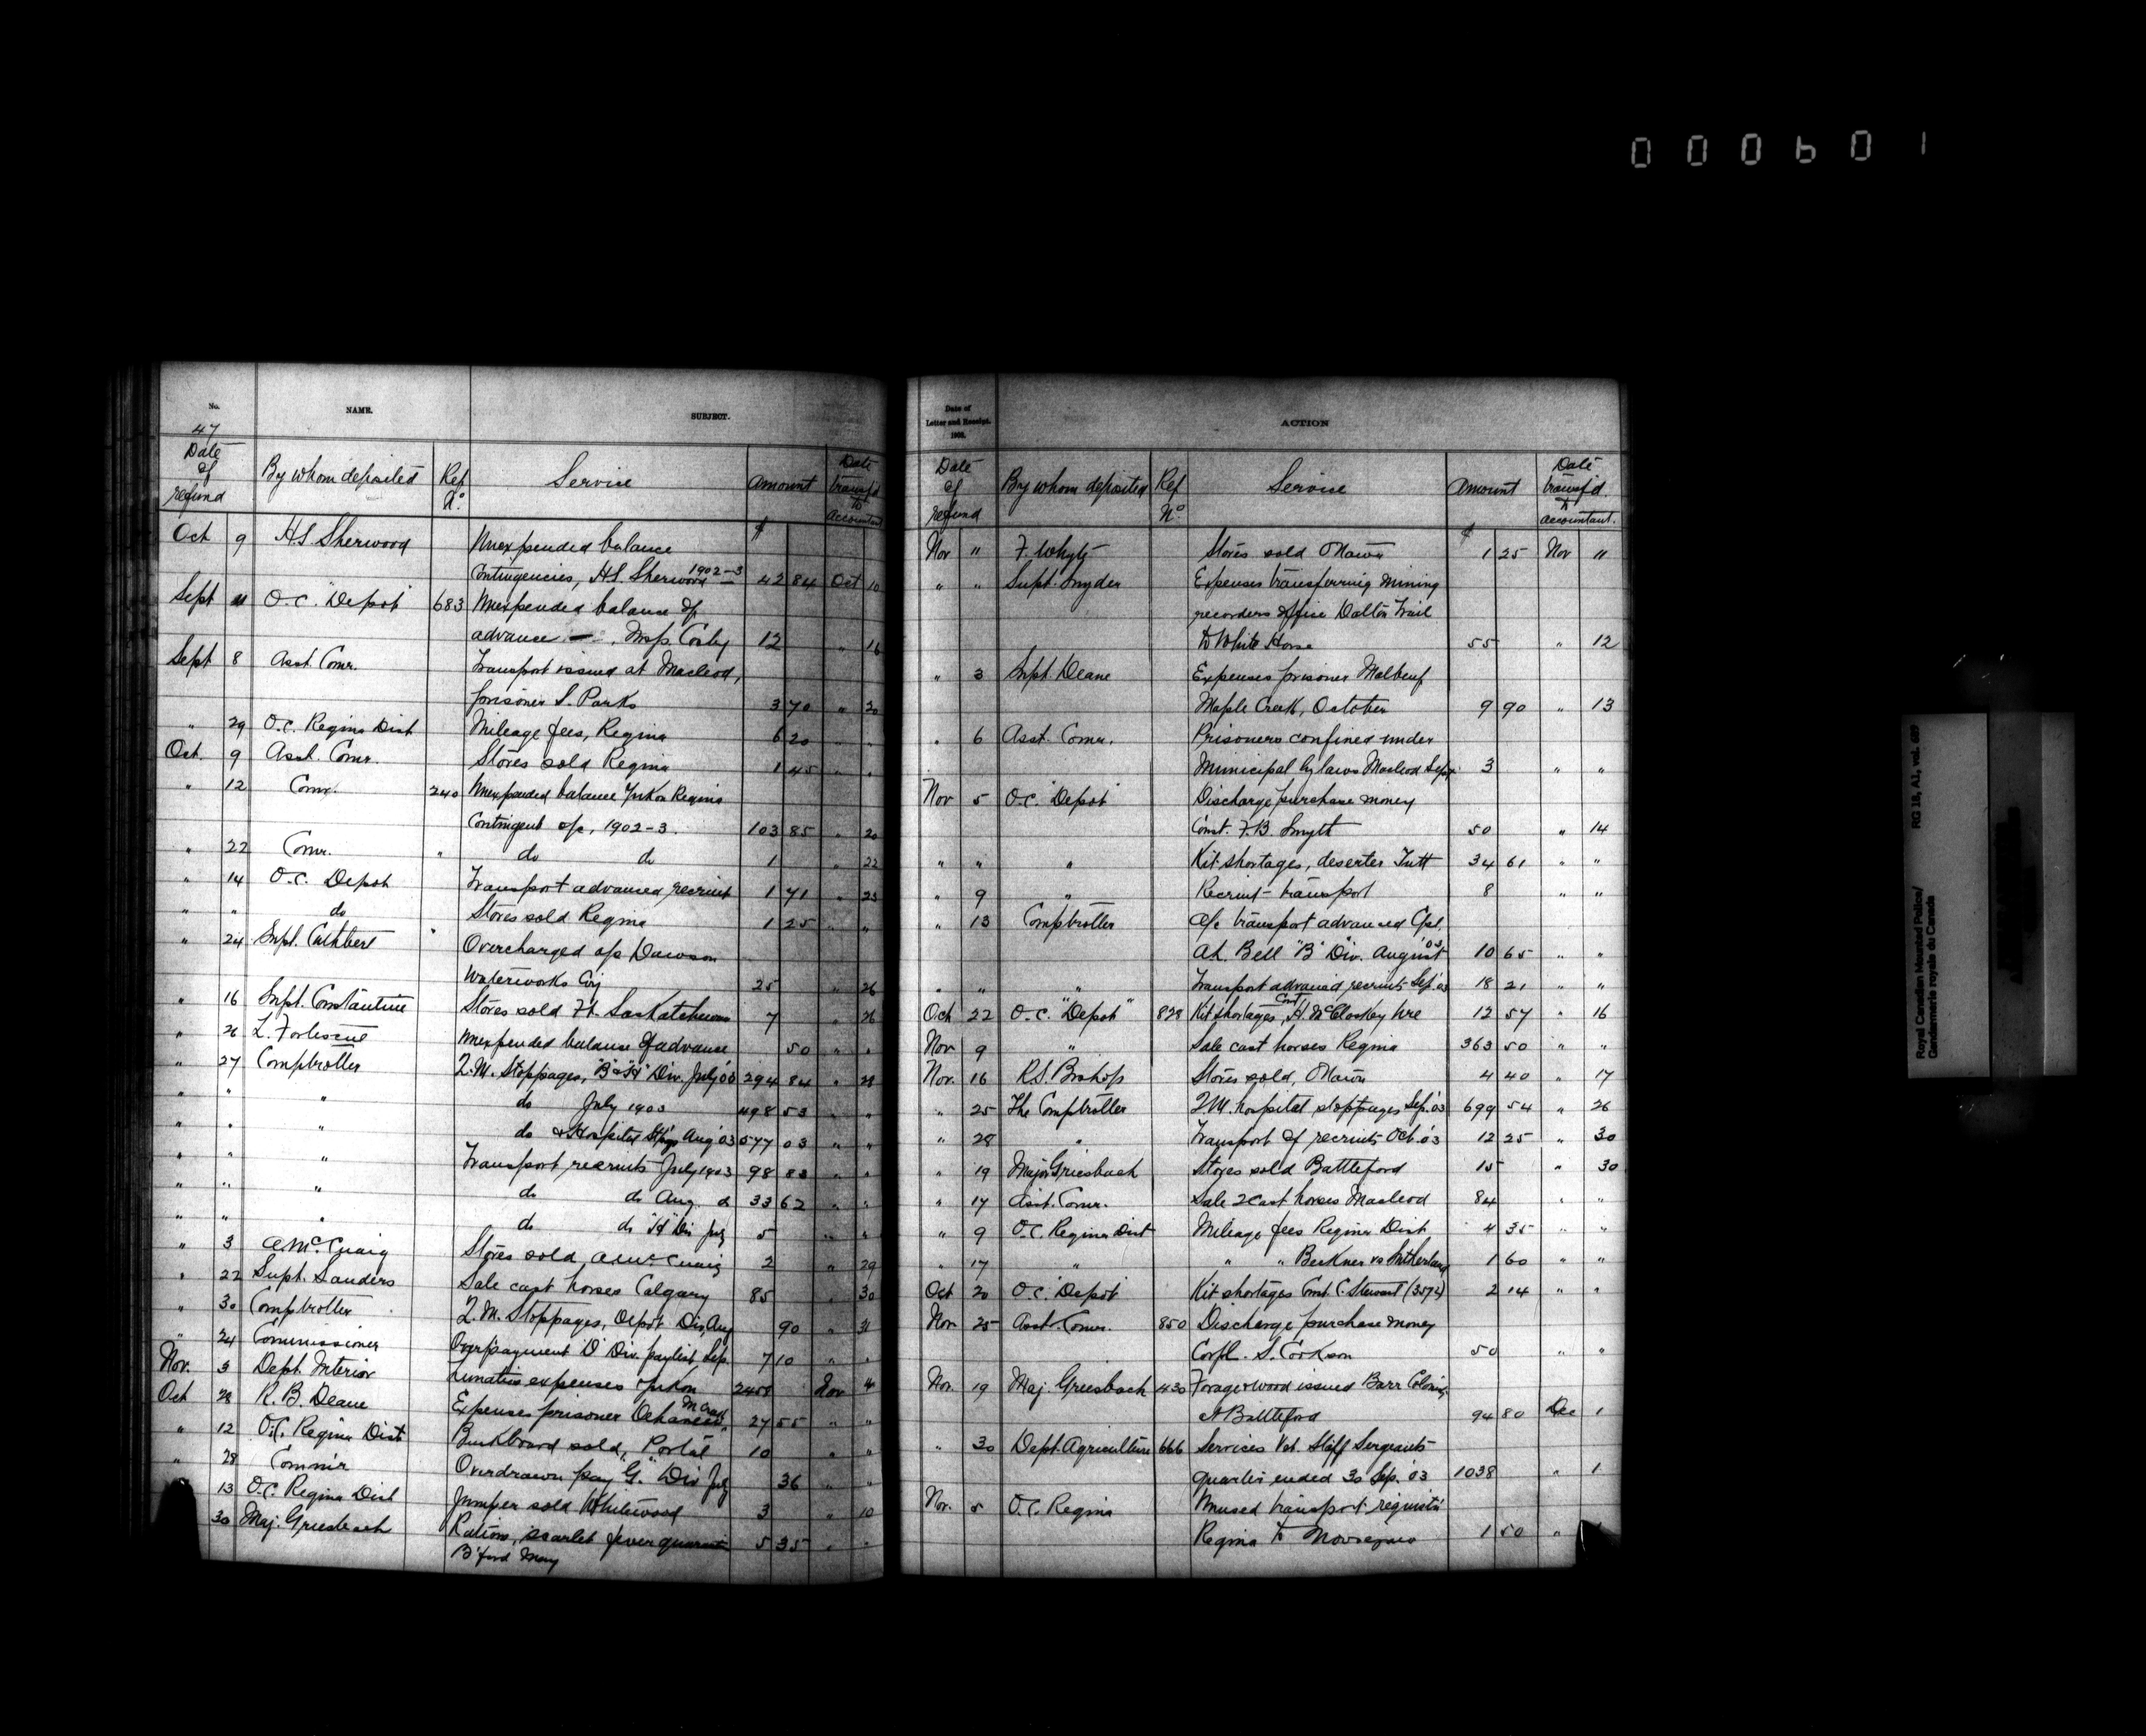 000601
No. NAME. SUBJECT.
47
Date of refund By whom deposited Ref No. Service Amount Date transf'd to Accountant
$
Oct 9 H.S. Sherwood Unexpended balance
Contingencies, H.S. Sherwood 1902-3 42 84 Oct 10
Sept O.C. "Depot" 683 Unexpended balance of
advance Insp Cosby 12 " 16
Sept 8 Asst Comr. Transport issued at Macleod,
prisoner S. Parks 3 70 " 20
" 29 O.C. Regina Dist Mileage fees, Regina 6 20 " "
Oct. 9 Asst. Comr. Stores sold Regina 1 45 " "
" 12 Comr. 240 Unexpended balance Yukon Regina
Contingent a/c, 1902-3. 103 85 " 20
" 22 Comr. " do do 1 " 22
" 14 O.C. Depot Transport advanced recruit 1 71 " 23
" " do Stores sold Regina 1 25 " "
" 24 Supt. Cuthbert Overcharged a/c Dawson
Waterworks Coy 25 " 26
" 16 Supt. Constantine Stores sold Ft. Saskatchewan 7 " 26
" 26 L. Fortescue Unexpended balance of advance 50 " "
" 27 Comptroller Q.M. Stoppages, "B" & "H" Div. July '03 294 84 " 28
" " " do July 1903 498 53 " "
" " " do & Hospital Stpgs Aug '03 577 03 " "
" " " Transport recruits July 1903 98 83 " "
" " " do do Aug. do 33 62 " "
" " " do do "H" Div July 5 " "
" 3 A. McCuaig Stores sold, A. McCuaig 2 " 29
" 22 Supt. Sanders Sale cast horses Calgary 85 " 30
" 30 Comptroller Q.M. Stoppages, Depot Div, Aug 90 " 31
" 24 Commissioner Overpayment "D" Div. paylist Sep. 7 10 " "
Nov. 3 Dept. Interior Lunatics expenses Yukon Nov 4
Oct 28 R. B. Deane Expenses prisoner 27 55 " "
" 12 O.C. Regina Dist Buckboard sold, "Portal" 10 " "
" 28 Commr Overdrawn pay "G." Div July 36 "
13 O.C. Regina Dist Jumper sold Whitewood 3 " 10
30 Maj. Griesbach Rations, scarlet fever quarantine 5 35 " "
B'ford May
Date of Letter and Receipt. 1902. ACTION
Date of refund By whom deposited Ref No. Service Amount Date transf'd to accountant.
$
Nov 11 F. Whyte Stores sold Ottawa 1 25 Nov 11
" " Supt. Snyder Expenses transferring mining
recorders office Dalton Trail
to White Horse 55 " 12
" 3 Supt. Deane Expenses prisoner Malbeuf
Maple Creek, October 9 90 " 13
" 6 Asst. Comr. Prisoners confined under
Municipal bylaws Macleod Sept. 3 " "
Nov 5 O.C. "Depot" Discharge purchase money
Const. F.B. Smyth 50 " 14
" " " Kit shortages, deserter Tutt 34 61 " "
" 9 " Recruit transport 8 " "
" 13 Comptroller a/c transport advanced Cpl.
Bell "B" Div. August '03 10 65 " "
" " " Transport advanced recruits Sep. '03 18 21 " "
Oct 22 O.C. "Depot" 828 Kit shortages, Const H. McCloskey 12 57 " 16
Nov 9 " Sale cast horses Regina 363 50 " "
Nov. 16 R.S. Bishop Stores sold, Ottawa 4 40 " 17
" 25 The Comptroller Q.M. hospital stoppages Sep. '03 699 54 " 26
" 28 " Transport of recruits Oct. '03 12 25 " 30
" 19 Major Griesbach Stores sold Battleford 15 " 30
" 17 Asst. Comr. Sale 2 cast horses Macleod 84 " "
" 9 O.C. Regina Dist Mileage fees Regina Dist 4 35 " "
" 17 " " " Beckner vs Sutherland 1 60 " "
Oct 20 O.C. "Depot" Kit shortages Const. C. Stewart (3572) 2 14 " "
Nov 25 Asst. Comr. 850 Discharge purchase money
Corpl. S. Cookson 50 " "
Nov. 19 Maj. Griesbach 430 Forage & wood issued Barr Colonists
at Battleford 94 80 Dec 1
" 30 Dept. Agriculture 666 Services Vet. Staff Sergeants
quarter ended 30 Sep. '03 1038 " 1
Nov. 5 O.C. Regina Unused transport requisitn
Regina to 1 50 "
Royal Canadian Mounted Police/ RG 18, A1, vol. 697
Gendarmerie royale du Canada